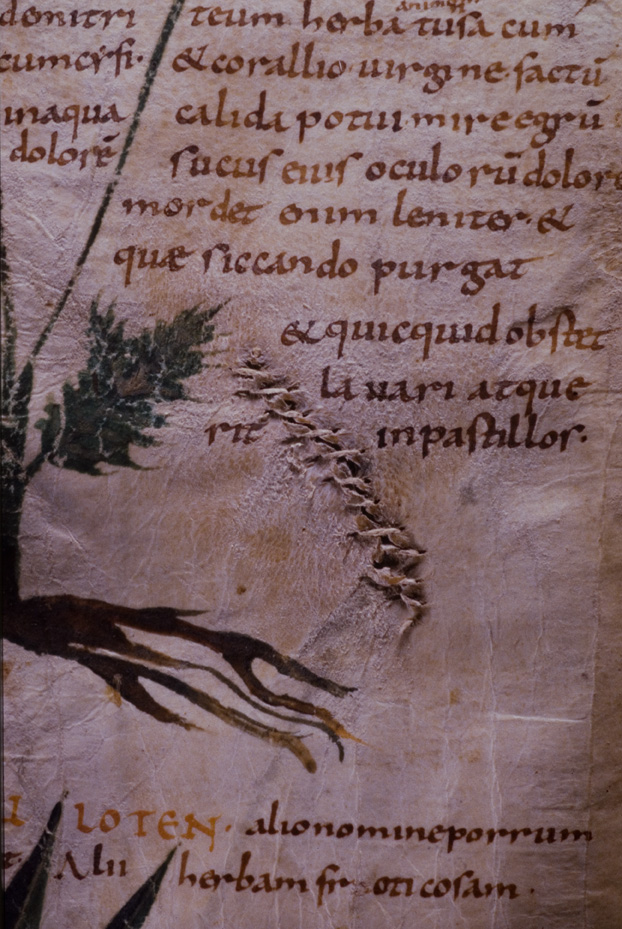 demitri teum herba tusa cum
cumcysi· & corallio uirgine factū
inaqua calida potui mire egrū
dolorē sucus eius oculorū dolore
mordet enim leniter· &
quæ siccando purgat
& quicquid obstet
lauari atque
rit inpastillos·
LOTEN· alio nomine porrum
Alii herbam fr oticosam·